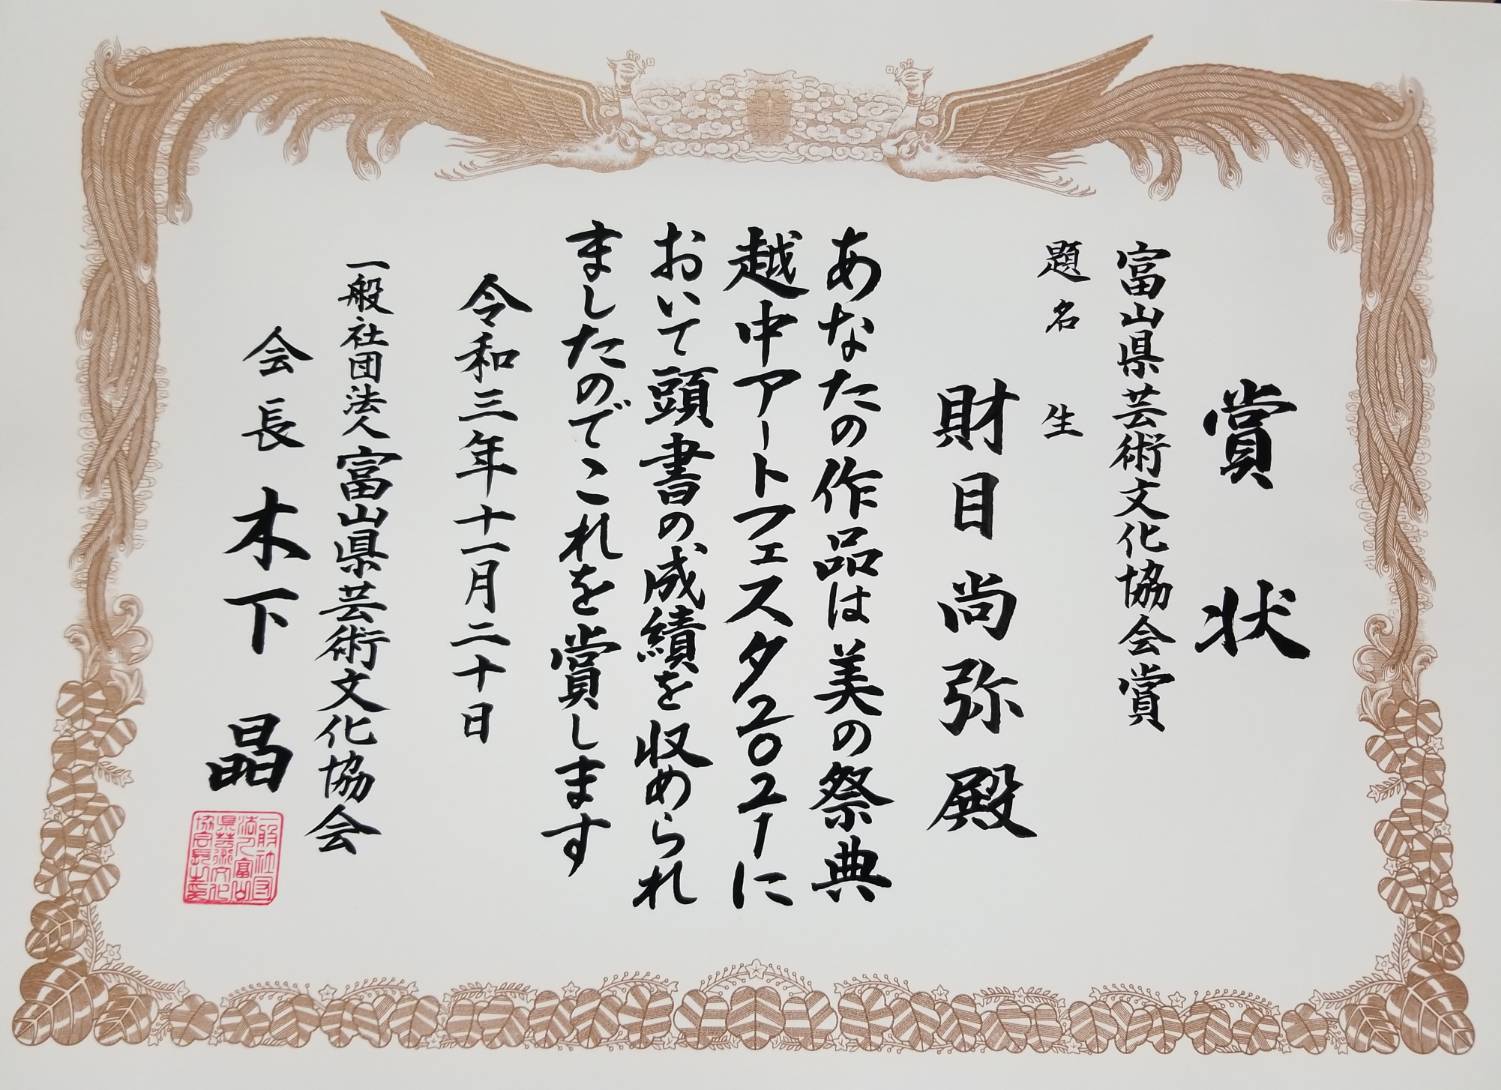 賞状
富山県芸術文化協会賞
題名 生
財目尚弥殿
あなたの作品は美の祭典
越中アートフェスタ2021に
おいて頭書の成績を収められ
ましたのでこれを賞します
令和三年十一月二十日
一般社団法人富山県芸術文化協会
会長木下晶
一般社団
法人富山
県芸術文化
協会長之印